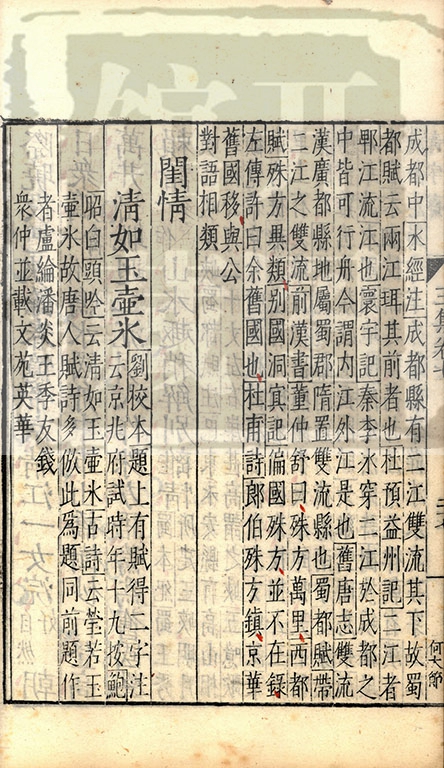 成都中水經注成都縣有二江雙流其下故蜀
都賦云兩江珥其前者也杜預益州記二江者
郫江流江也寰宇記秦李冰穿二江於成都之
中皆可行舟今謂內江外江是也舊唐志雙流
漢廣都縣地屬蜀郡隋置雙流縣也蜀都賦帶
二江之雙流前漢書董仲舒曰殊方萬里西都
賦殊方異類別國洞冥記偏國殊方並不在錄
左傳許曰余舊國也杜甫詩郎伯殊方鎮京華
舊國移與公
對語相類
閨情
清如玉壺氷
劉校本題上有賦得二字注
云京兆府試時年十九按鮑
昭白頭吟云清如玉壺氷古詩云瑩若玉
壷氷故唐人賦詩多倣此為題同前題作
者盧綸潘炎王季友錢
衆仲並載文苑英華
何大節